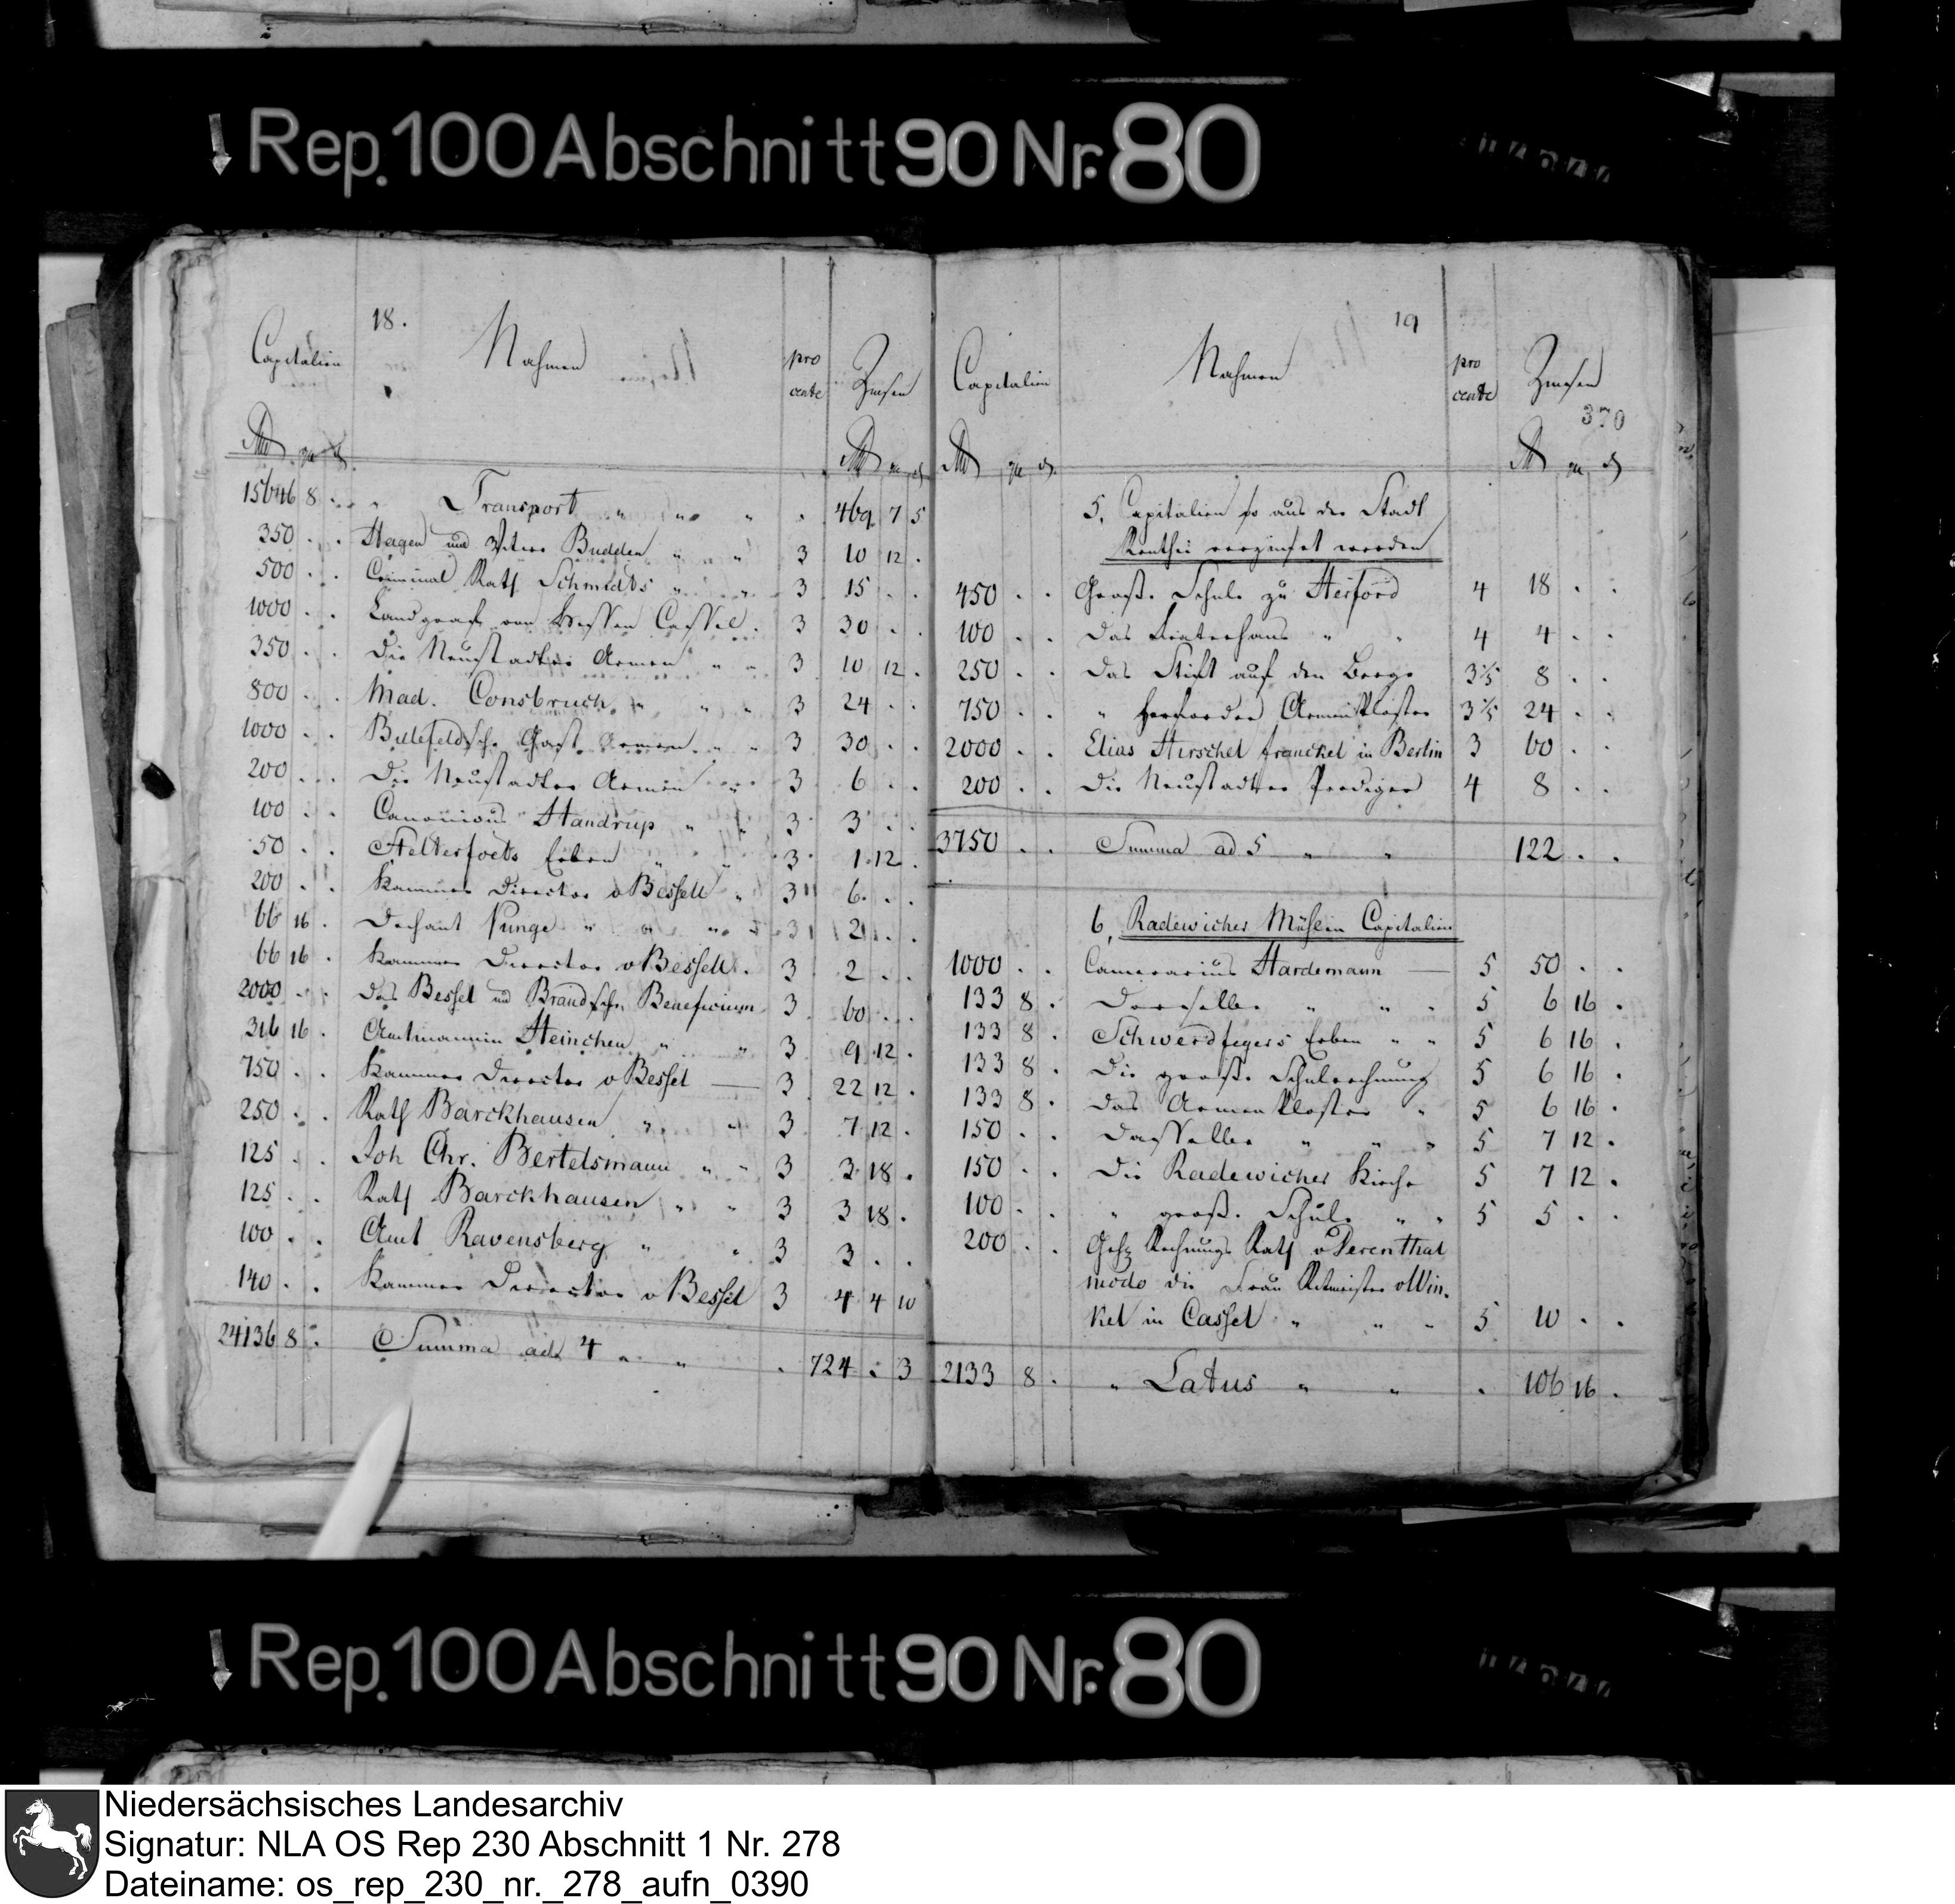 Rep. 100 Abschnitt 90 Nr. 80
18.
Capitalien Nahmen pro cente Zinsen
15646 8 . " Transport " " " . 469 7 5
350 . . Hagen und Budden " " 3 10 12 .
500 . . Criminal Rath Schmidts " " 3 15 . .
1000 . . Landgraf von Hessen Cassel . 3 30 . .
350 . . Die Neustadter Armen " " 3 10 12 .
800 . . Mad. Consbruch " " " 3 24 . .
1000 . . Bielefeldsche Gast Armen " " 3 30 . .
200 . . Die Neustadter Armen " 3 6 . .
100 . . Canonicus Handrup " " 3 3 . .
50 . . Erben " " 3 1 12 .
200 . . Kammer Director v Bessell " 3 6 . .
66 16 . Dechant Vunge " " " 3 2 . .
66 16 . Kammer Director v Bessell . 3 2 . .
2000 . . Das Bessel und Brandsche Beneficium 3 60 . .
316 16 . Amtmannin Heinchen " " 3 9 12 .
750 . . Kammer Director v Bessel — 3 22 12 .
250 . . Rath Barckhausen " " 3 7 12 .
125 . . Joh Chr. Bertelsmann " " 3 3 18 .
125 . . Rath Barckhausen " " 3 3 18 .
100 . . Amt Ravensberg " " 3 3 . .
140 . . Kammer Director v Bessel 3 4 4 10
24136 8 . Summa ad 4 " " . 724 . 3
19
Capitalien Nahmen pro cente Zinsen
370
5, Capitalien so aus der Stadt
Renthei verzinset werden
450 . . Große Schule zu Herford 4 18 . .
100 . . Das " " 4 4 . .
250 . . Das Stift auf den Berge 3 1/5 8 . .
750 . . " Herforder Armenkloster 3 1/5 24 . .
2000 . . Elias Hirschel franckel in Berlin 3 60 . .
200 . . Die Neustadter Prediger 4 8 . .
3750 . . Summa ad 5 " " 122 . .
6, Radewicher Mühlen Capitalien
1000 . . Camerarius Hardemann — 5 50 . .
133 8 . Derselbe " " " 5 6 16 .
133 8 . Schwerdfegers Erben " " 5 6 16 .
133 8 . Die große Schulrechnung 5 6 16 .
133 8 . Das Armenkloster " 5 6 16 .
150 . . Dasselbe " " " 5 7 12 .
150 . . Die Radewicher Kirche 5 7 12 .
100 . . " große Schule " " 5 5 . .
200 . . Geh Rechnungs Rath v Derenthal
modo die Frau Ritmeister v Win-
kel in Cassel " " " 5 10 . .
2133 8 . " Latus " " . 106 16 .
Rep. 100 Abschnitt 90 Nr. 80
Niedersächsisches Landesarchiv
Signatur: NLA OS Rep 230 Abschnitt 1 Nr. 278
Dateiname: os_rep_230_nr._278_aufn_0390